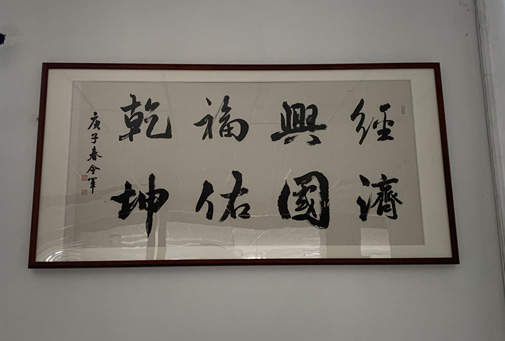 經濟
興國
福佑
乾坤
庚子春令軍